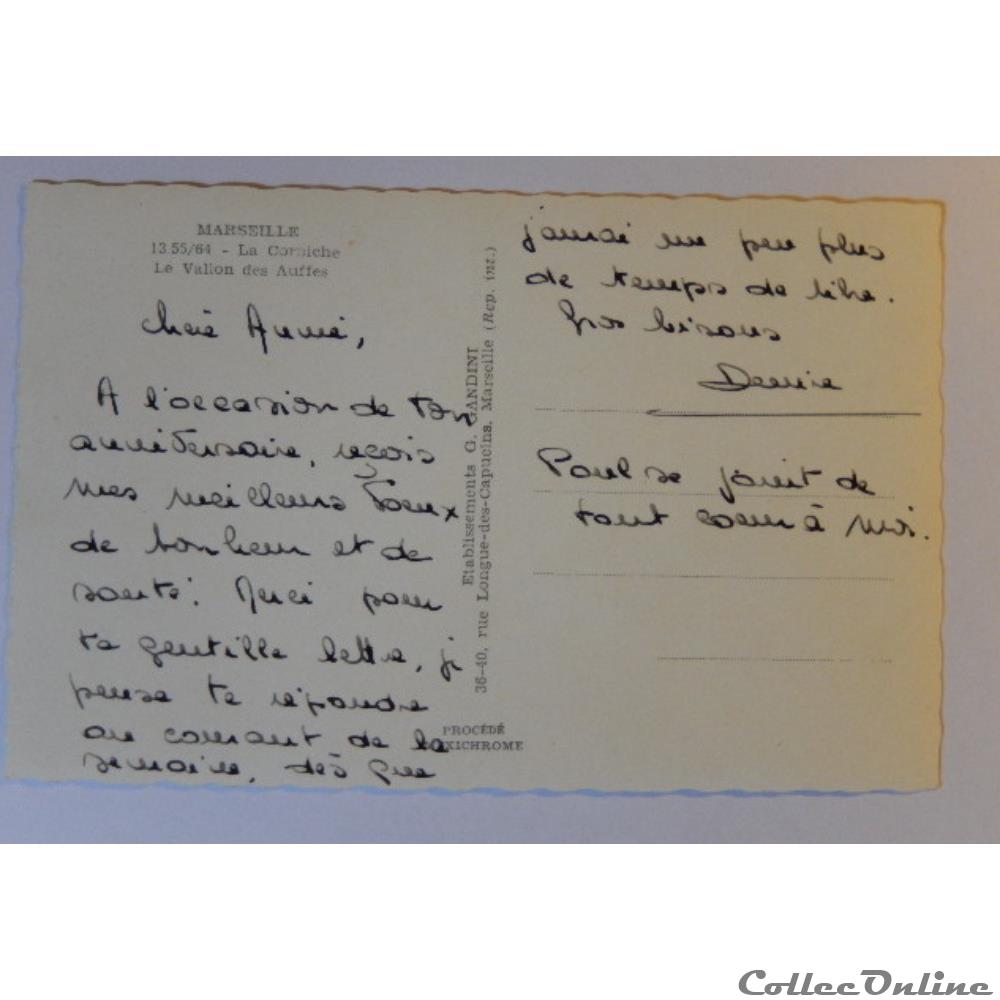 MARSEILLE
13.55/64 - La Corniche
Le Vallon des Auffes
Chère Annie,
A l'occasion de ton
anniversaire, reçois
mes meilleurs voeux
de bonheur et de
santé. Merci pour
ta gentille lettre, je
pense te répondre
au courant de la
semaine, dès que
Etablissements G. GANDINI
36-40, rue Longue-des-Capucins, Marseille (Rep. int.)
PROCÉDÉ
XICHROME
j'aurai un peu plus
de temps de libre.
Gros bisous
Denise
Paul se joint de
tout coeur à moi.
CollecOnline